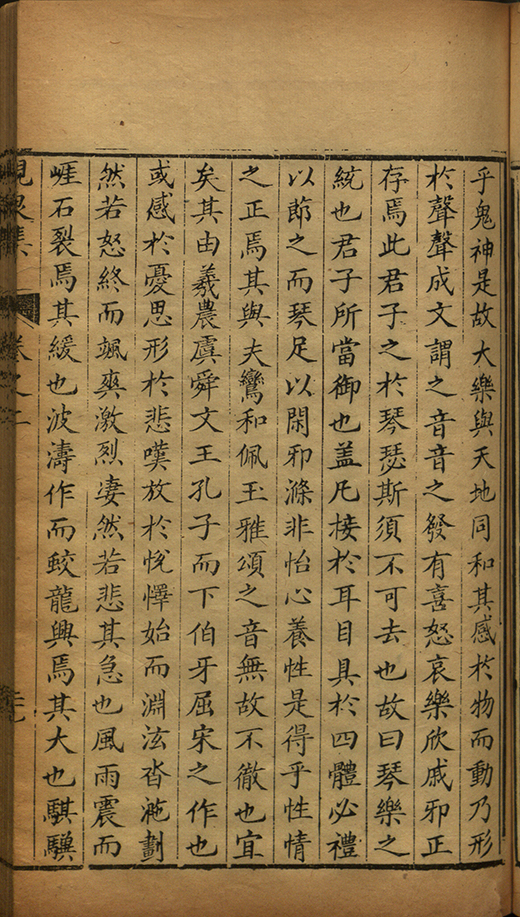 乎鬼神是故大樂與天地同和其感於物而動乃形
於聲聲成文謂之音音之發有喜怒哀樂欣戚邪正
存焉此君子之於琴瑟斯須不可去也故曰琴樂之
統也君子所當御也盖凡接於耳目具於四體必禮
以節之而琴足以閑邪滌非怡心養性是得乎性情
之正焉其與夫鸞和佩玉雅頌之音無故不徹也宜
矣其由羲農虞舜文王孔子而下伯牙屈宋之作也
或感於憂思形於悲嘆放於悅懌始而淵泫沓滟劃
然若怒終而颯爽激烈凄然若悲其急也風雨震而
崕石裂焉其緩也波濤作而蛟龍興焉其大也騏驥
卷之二